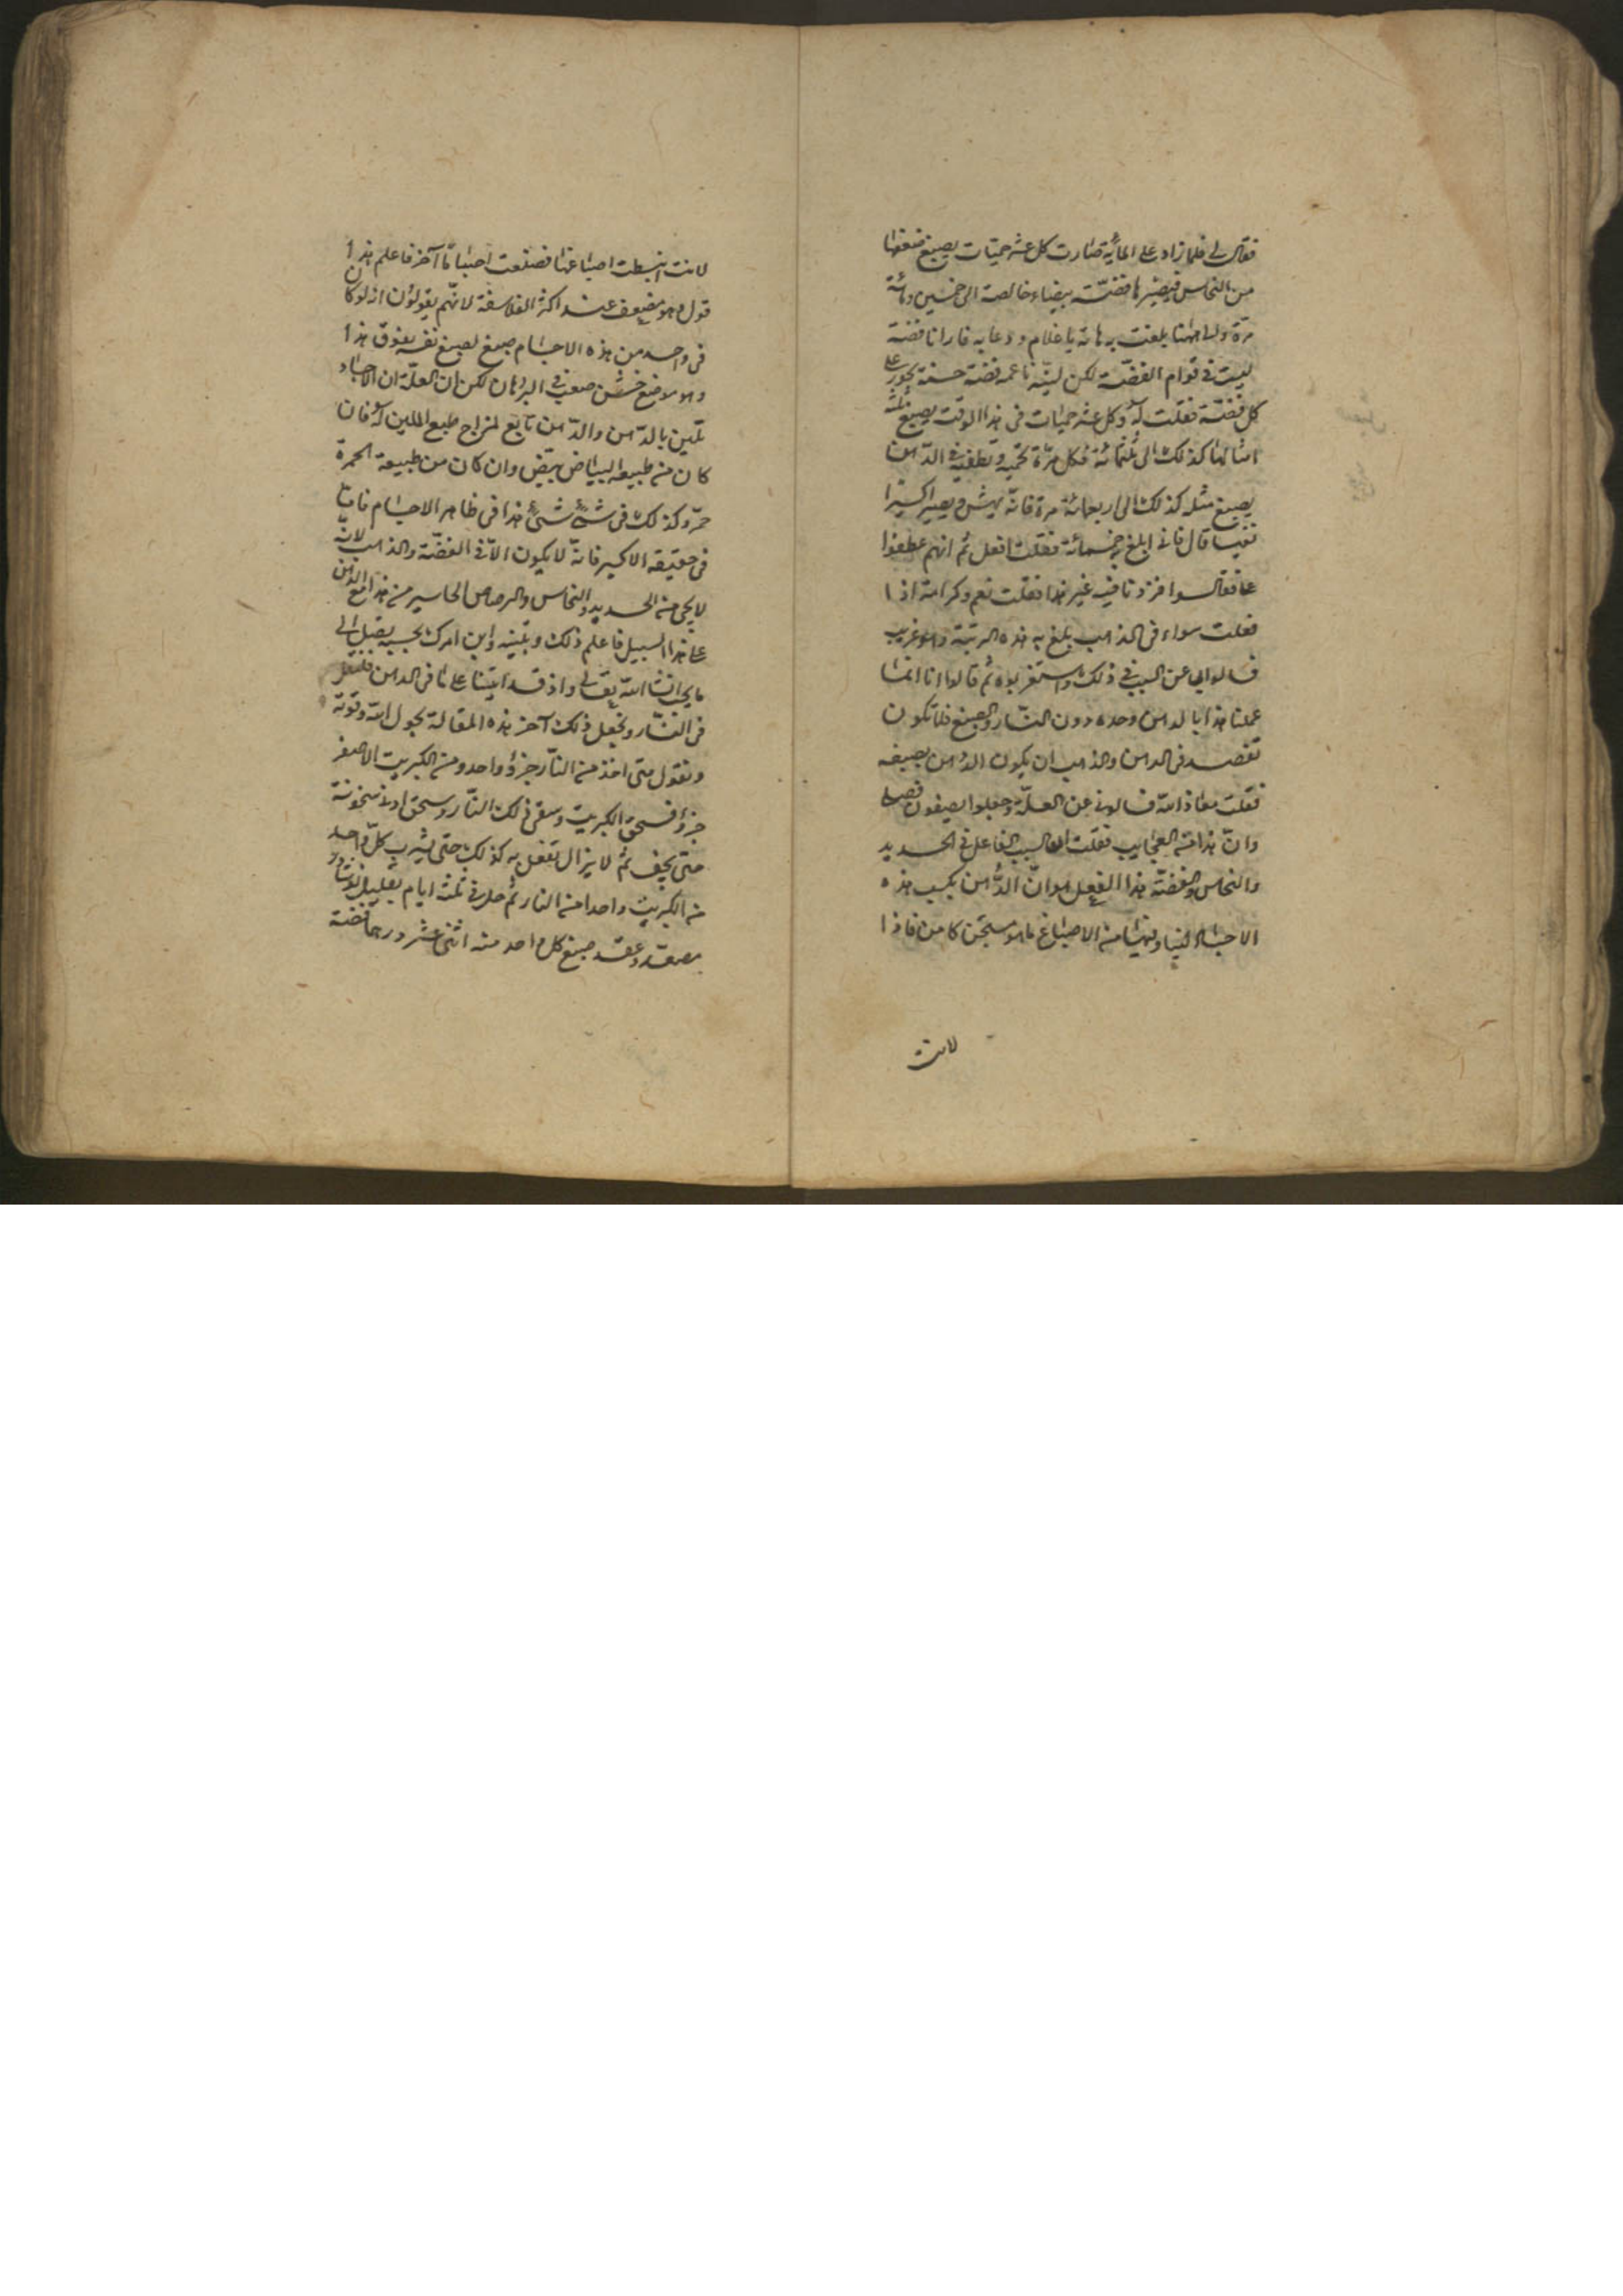 فقال لى فلما زاد على المائة صارت كل عشر حميات يصبغ ضعفها
من النحاس فيصيرها فضّة بيضاء خالصة الى خمسين ومائة
مرّة والى ههنا بلغت به هاته يا غلام ودعا به فارانا فضة
ليست فى قوام الفضّة لكن ليّنة ناعمه فضة حسنة يجوز على
كل فضّة فقلت له وكل عشر حميات فى هذا الوقت يصبغ ثلثة
امثالها كذلك الى ثلثمائة فكل مرّة تحميه وتطفيه فى الدّهن
يصبغ مثله كذلك الى اربعمائة مرة فانّه يهش ويصير اكسيرا
نفيسا قال فانى ابلغ به خمسمائة فقلت افعل ثم انهم عطفوا
علىّ فقالوا فزدنا فيه غير هذا فقلت نعم وكرامة اذا
فعلت سواء فى الذهب بلغ به هذه المرتبة وهو غريب
فسالوانى عن السبب فى ذلك واستغربوه ثم قالوا انا انما
عملنا هذا بالدهن وحده دون النار والصبغ فلما تكون
تقصد فى الدهن والذهب ان يكون الدهن يصبغه
فقلت معاذ الله فسالونى عن العلّة وجعلوا يصيفون
وانّ هذا منه العجايب فقلت ان السبب الفاعل فى الحديد
والنحاس والفضّة هذا الفعل هو انّ الدّهن يكسب هذه
الاجساد لينا وفيها من الاصباغ ما هو مستجن كامن فاذا
لانت
لانت انبسطت اصباغها فصبغت اجساما آخر فاعلم هذا
قول وهو ضعيف عند اكثر الفلاسفة لانّهم يقولون ان لو كان
فى واحد من هذه الاجسام صبغ لصبغ نفسه بفوق هذا
وهو موضع خشن صعب فى البرهان لكن ان العلّة ان الاجساد
تلين بالدّهن والدّهن تابع لمزاج طبع الملين له فان
كان من طبيعه البياض بيّض وان كان من طبيعة الحمرة
حمّر وكذلك فى شئ شئ هذا فى ظاهر الاجسام فامّا
فى حقيقة الاكسير فانه لا يكون الّا فى الفضّة والذهب لانّه
لا يجئ من الحديد والنحاس والرصاص اكاسير من هذا مع الدهن
على هذا السبيل فاعلم ذلك وتبيّنه وابن امرك بحسبه يصل الى
ما يجب ان شا الله تعالى واذ قد اتينا على ما فى الدهن فلنقل
فى النّار ونجعل ذلك آخر هذه المقالة بحول الله وقوته
ونقول متى اخذ من النّار جزؤ واحد ومن الكبريت الاصفر
جزؤ فسحق الكبريت وسقى ذلك النّار وسحق ادنى سخونة
حتى يجف ثم لا يزال تفعل به كذلك حتى يشرب كلّ واحد
من الكبريت واحدا من النار ثم حل فى ثلثة ايام بقليل نوشادر
مصعّد وعقد صبغ كل واحد منه اثنى عشر درهما فضة